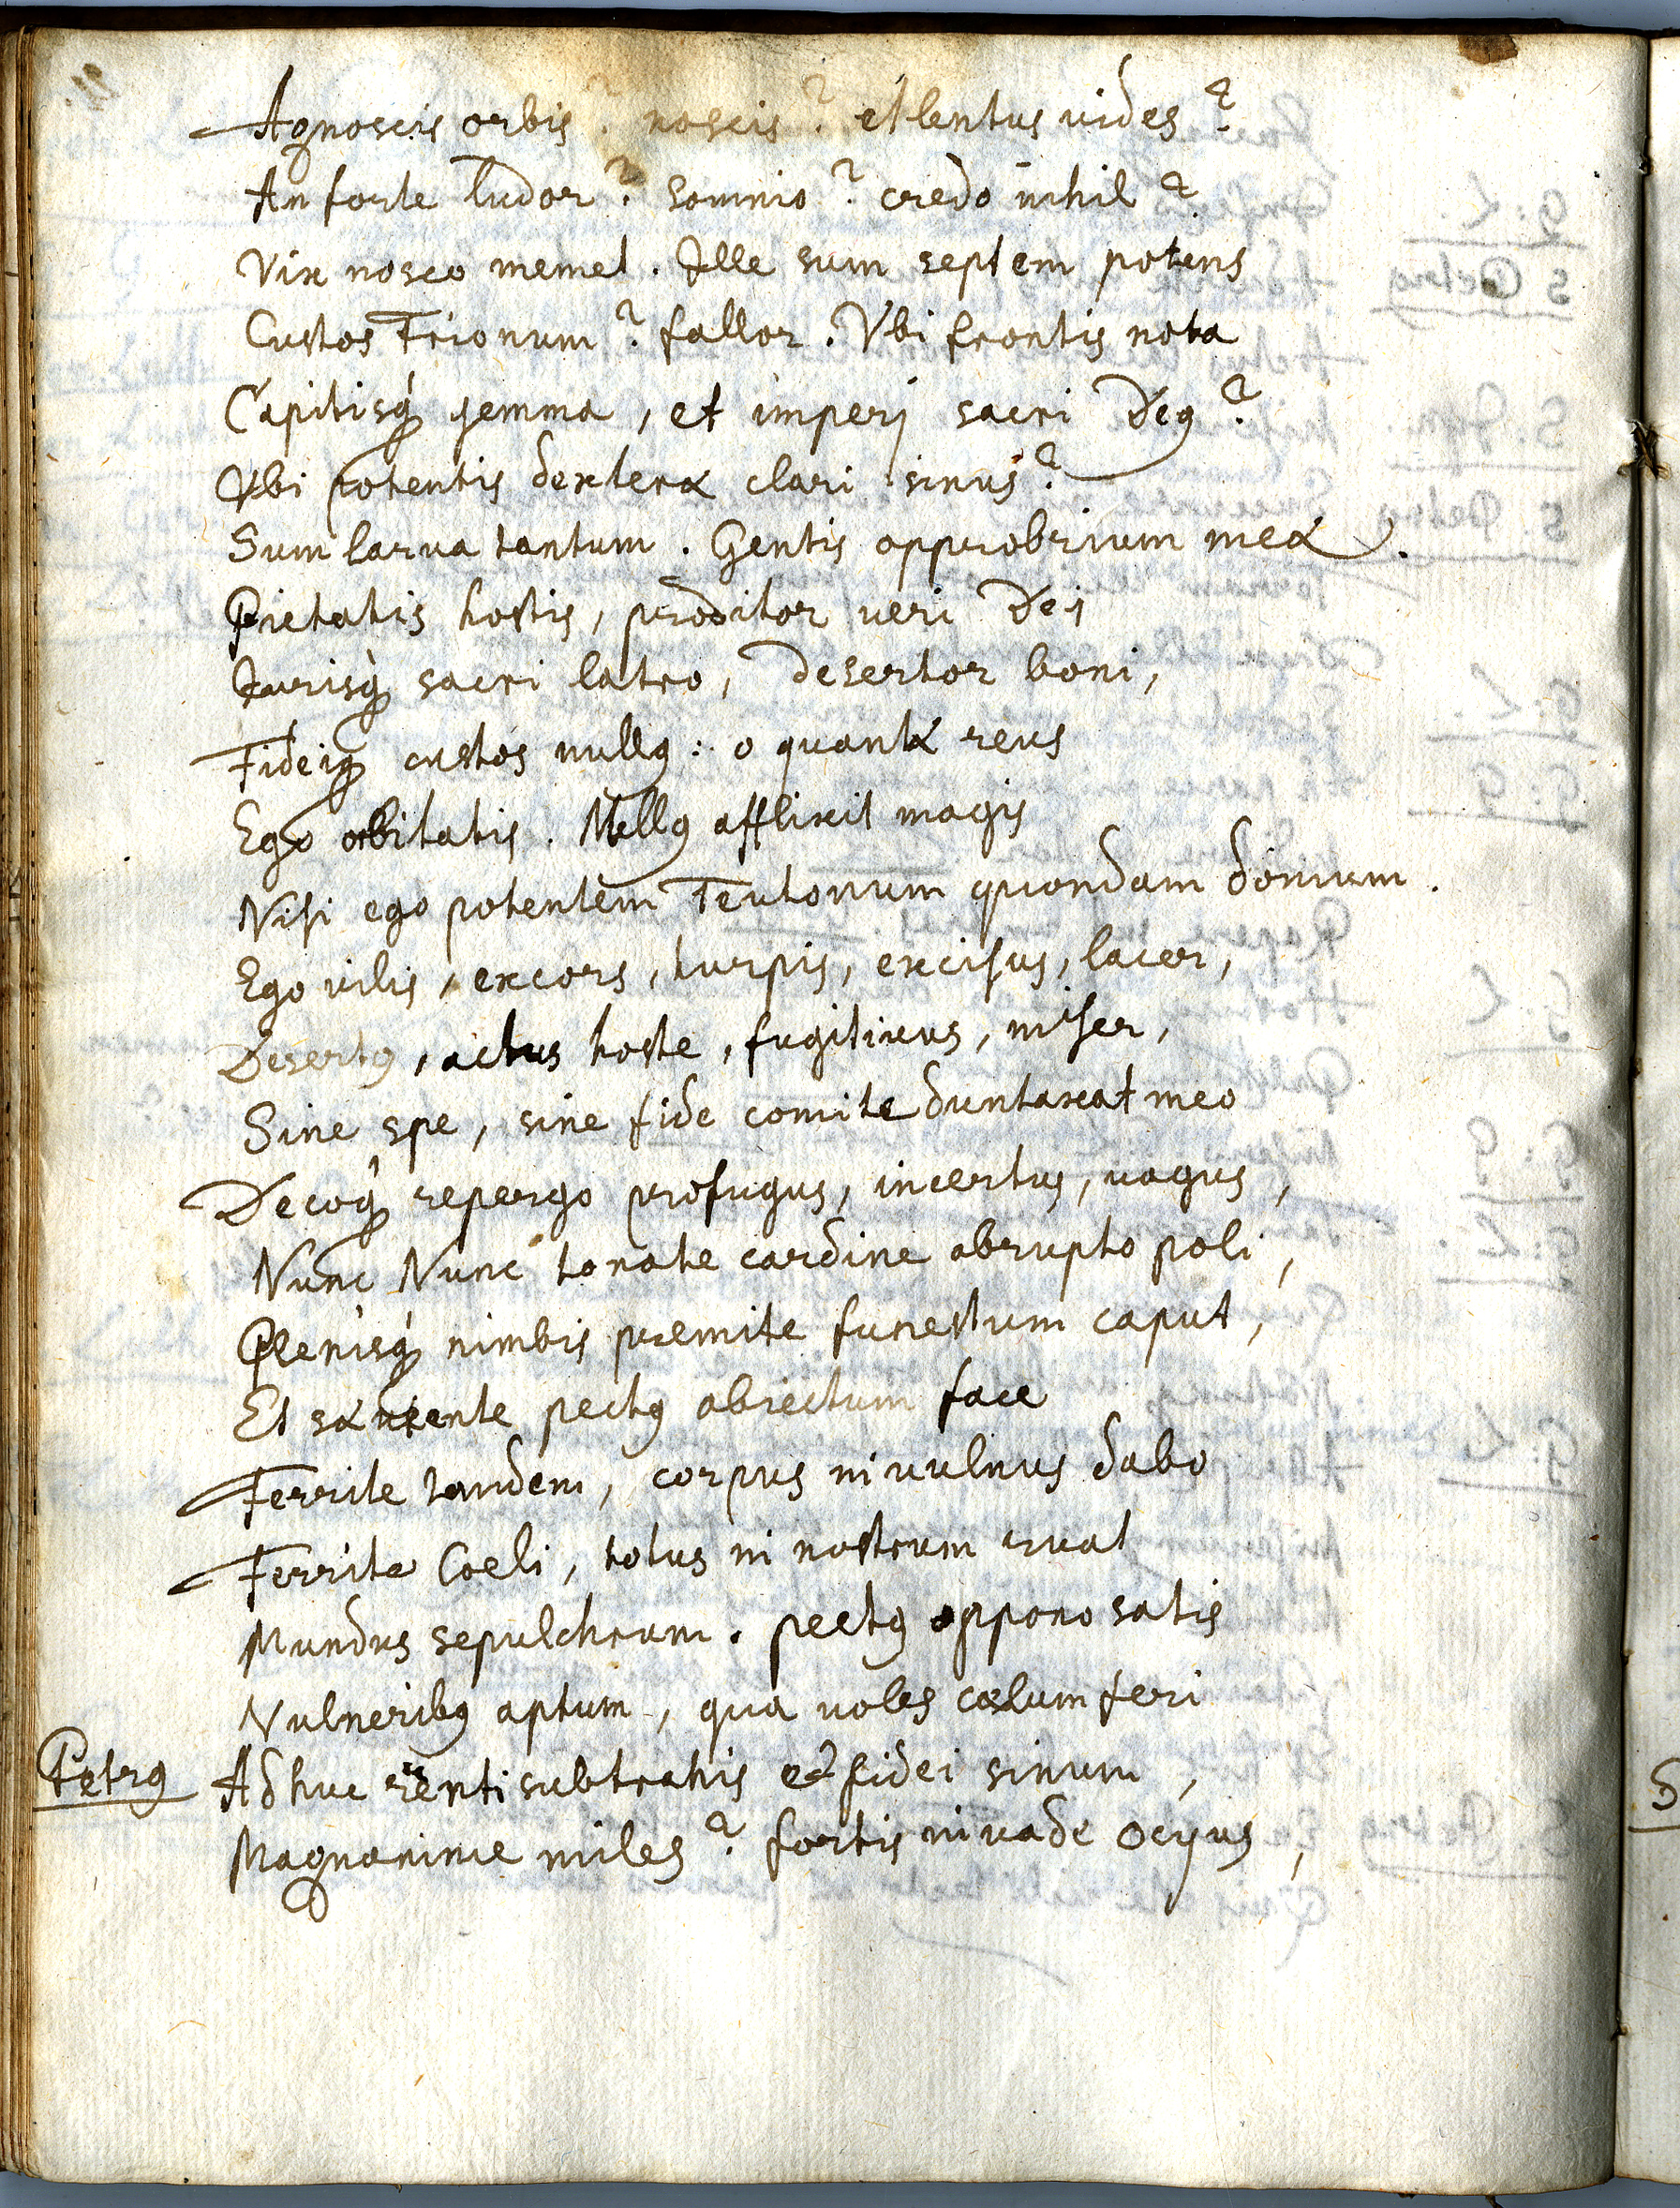 Agnoscis orbis? noscis? et lentus uides?
An forte ludor? somnio? credo nihil?
Vix nosco memet. Ille sum septem potens
Custos Trionum? fallor. Vbi frontis nota
Capitisq́ꝫ gemma, et imperij sacri Decꝰ?
Vbi potentis dexteræ clari sinus?
Sum larua tantum. Gentis opprobrium meæ.
Pietatis hostis, proditor ueri Dei
Iurisq́ꝫ sacri latro, desertor boni,
Fideiqꝫ custos nullꝰ: o quantæ reus
Ego orbitatis. Nullꝰ afflixit magis
Nisi ego potentem Teutonum quondam domum.
Ego uilis, excors, turpis, excisus, lacer,
Desertꝰ, actus hoste, fugitiuus, miser,
Sine spe, sine fide comite duntaxat meo
Decoq́ꝫ repergo profugus, incertus, uagus,
Nunc Nunc tonate cardine abrupto poli,
Plenisq́ꝫ nimbis premite funestum caput,
Et sæuiente pectꝰ abiectum face
Ferrite tandem, corpus in uulnus dabo
Ferrite Coeli, totus in nostrum ruat
Mundus sepulchrum. pectꝰ oppono satis
Vulneribꝰ aptum, qua uoles cælum feri
Petrꝰ Adhuc subtrahis fidei sinum,
Magnanime miles? fortis inuade ocyus,
S